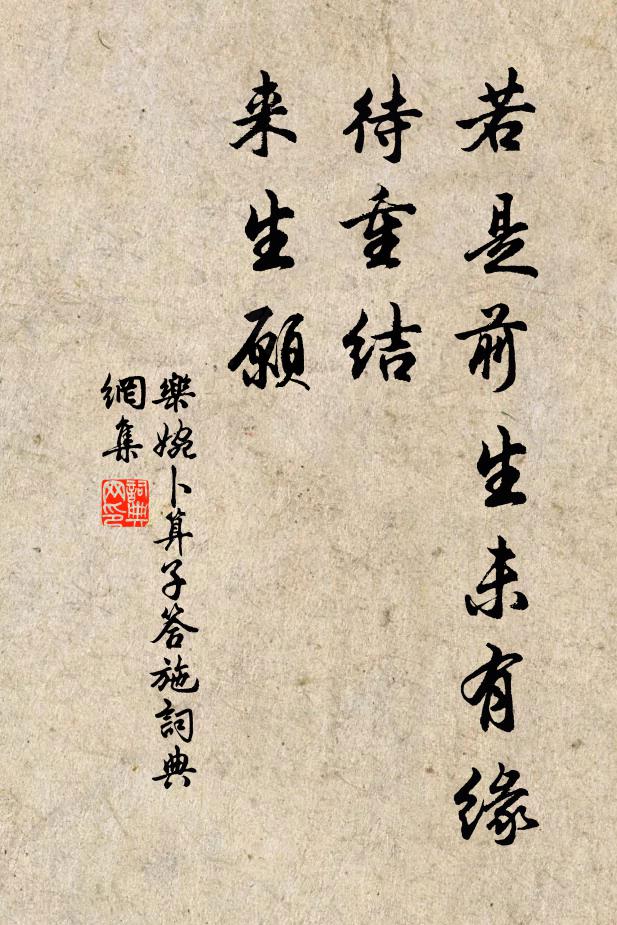 若是前生未有緣
待重结
来生願
樂婉卜算子答施詞典
網集
詞典
网印